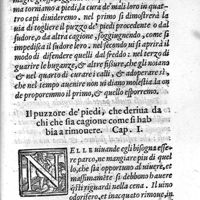 torniamo a piedi, la cura de' mali loro in quat-
tro capi diuideremo. nel primo si dimostrerà la
uia di togliere il puzzo de' piedi procedente o dal
sudore, o da altra cagione, soggiugnendo, come si
impedisca il sudore loro. nel secondo si narrerà il
modo di difendere quelli dal freddo. nel terzo di
guarire le buganze, & altre fissure, che gli noiano
& nel quarto di curare i calli, & adoperare sì,
che nel tempo auenire non ui diano molestia. da on
de proporremmo il primo, & quello esporremo.
Il puzzore de' piedi, che deriua da
chi che sia cagione come si hab
bia a rimouere. Cap. I.
NELLE uiuande egli bisogna esse-
re parco, ne mangiare piu di quel
lo, che sia opportuno al uiuere, et
massimamẽte si debbono hauere
questi riguardi nella cena. Il uino
odorifero, et inacquato rimoue, in